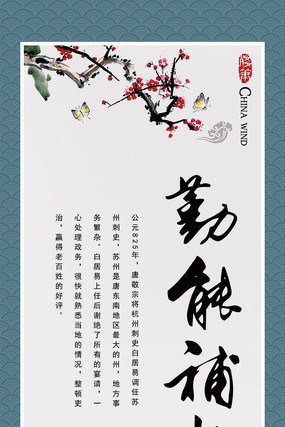 CHINA WIND
勤能补
公元825年，唐敬宗将杭州刺史白居易调任苏
州刺史，苏州是唐东南地区最大的州，地方事
务繁杂。白居易上任后谢绝了所有的宴请，一
心处理政务，很快就熟悉当地的情况，整顿吏
治，赢得老百姓的好评。